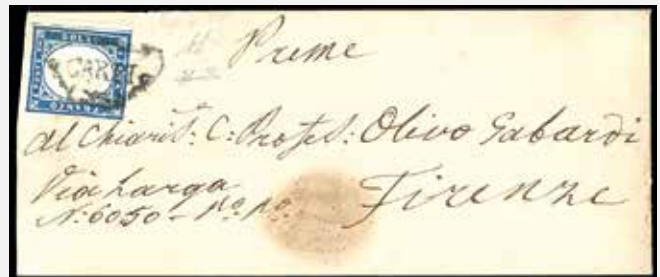 CARPI
Preme
Al Chiarit: C: Profess: Olivo Gabardi
Via Larga
N: 6050 - Pº Pº
Firenze